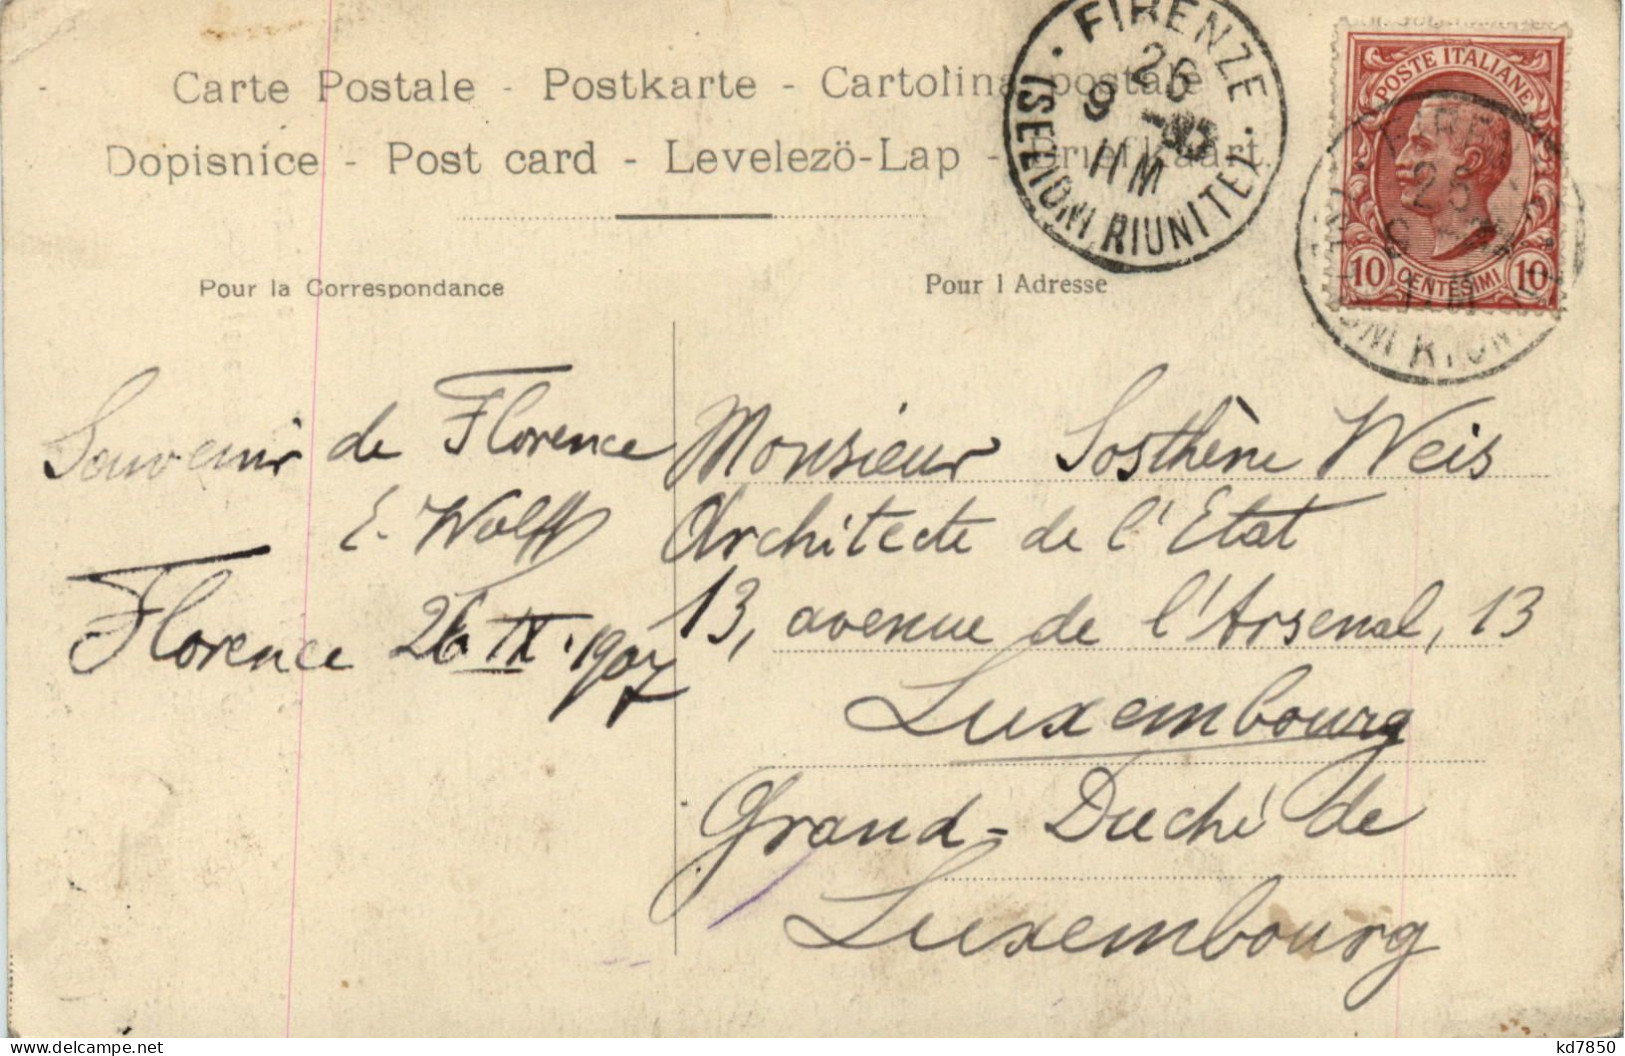 Carte Postale - Postkarte - Cartolina postale
Dopisnice - Post card - Levelezö-Lap - Briefkaart
FIRENZE
26
9 - 07
11 M
(SEZIONI RIUNITE)
POSTE ITALIANE
10 CENTESIMI 10
Pour la Correspondance
Pour l Adresse
Souvenir de Florence
E. Wolff
Florence 26 IX. 1907
Monsieur Sosthène Weis
Architecte de l'Etat
13, avenue de l'Arsenal, 13
Luxembourg
Grand-Duché de
Luxembourg
www.delcampe.net
kd7850